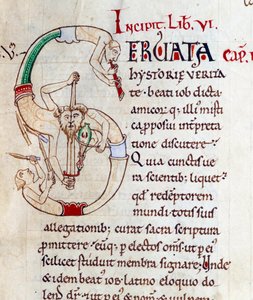 Incipit. Lib. VI.
SERVATA Cap. I
hystorię verita
te. beati iob dicta
amicorq; illi' misti
ca pposui inpreta
tione discutere.
Quia cunctis ue
ra scientib; liquet.
qd redeptorem
mundi totis suis
allegationib; curat sacra scriptura
pmittere. eumq; p electos oms. ut p ei'
scilicet studuit membra signare. Unde
& idem beat' iob. latino eloquio do
lens dr. ut p ei' & nom & uulnera.